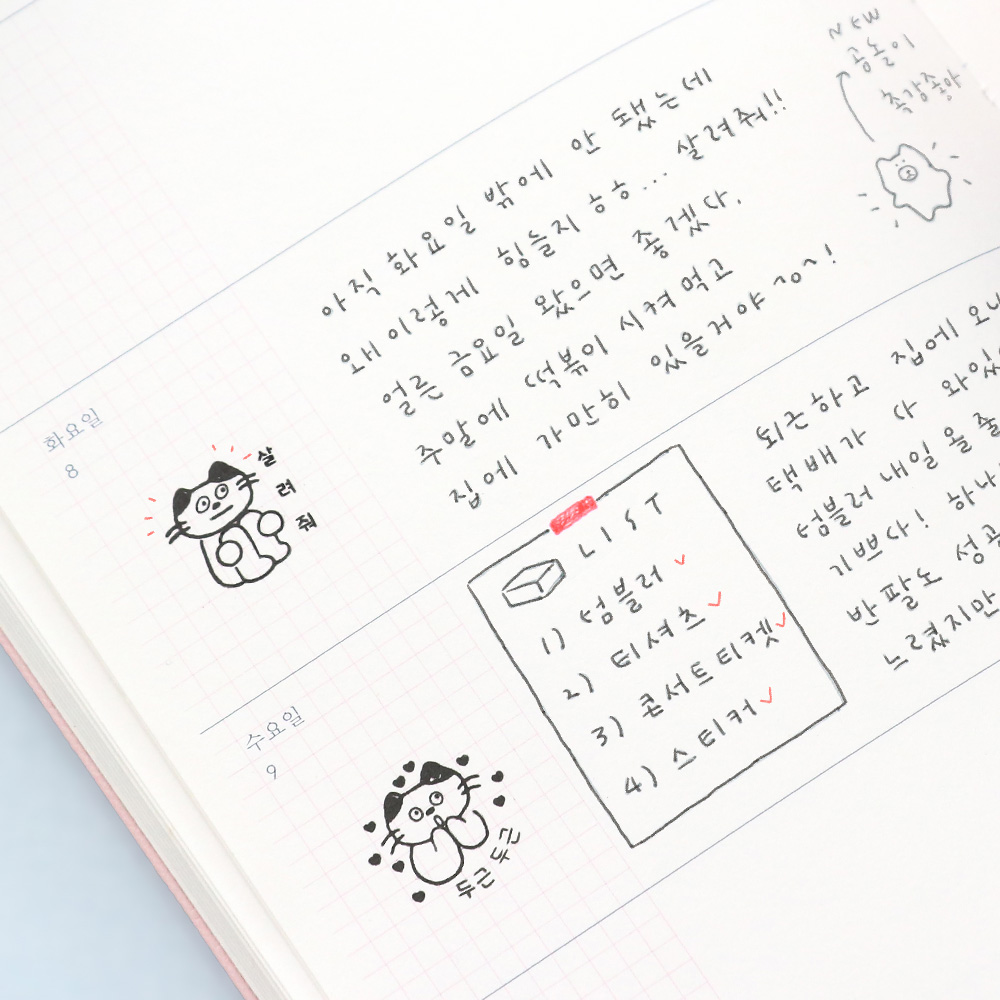 NEW
공놀이
촉감좋아
화요일
8
살
려
줘
아직 화요일 밖에 안 됐는데
왜이렇게 힘들지 ㅎㅎ... 살려줘!!
얼른 금요일 왔으면 좋겠다.
주말에 떡볶이 시켜먹고
집에 가만히 있을거야 ~o~!
수요일
9
두근두근
LIST
1) 텀블러
2) 티셔츠
3) 콘서트티켓
4) 스티커
퇴근하고 집에 오니
택배가 다 와있
텀블러 내일 올 줄
기쁘다! 하나
반팔도 성공
느렸지만